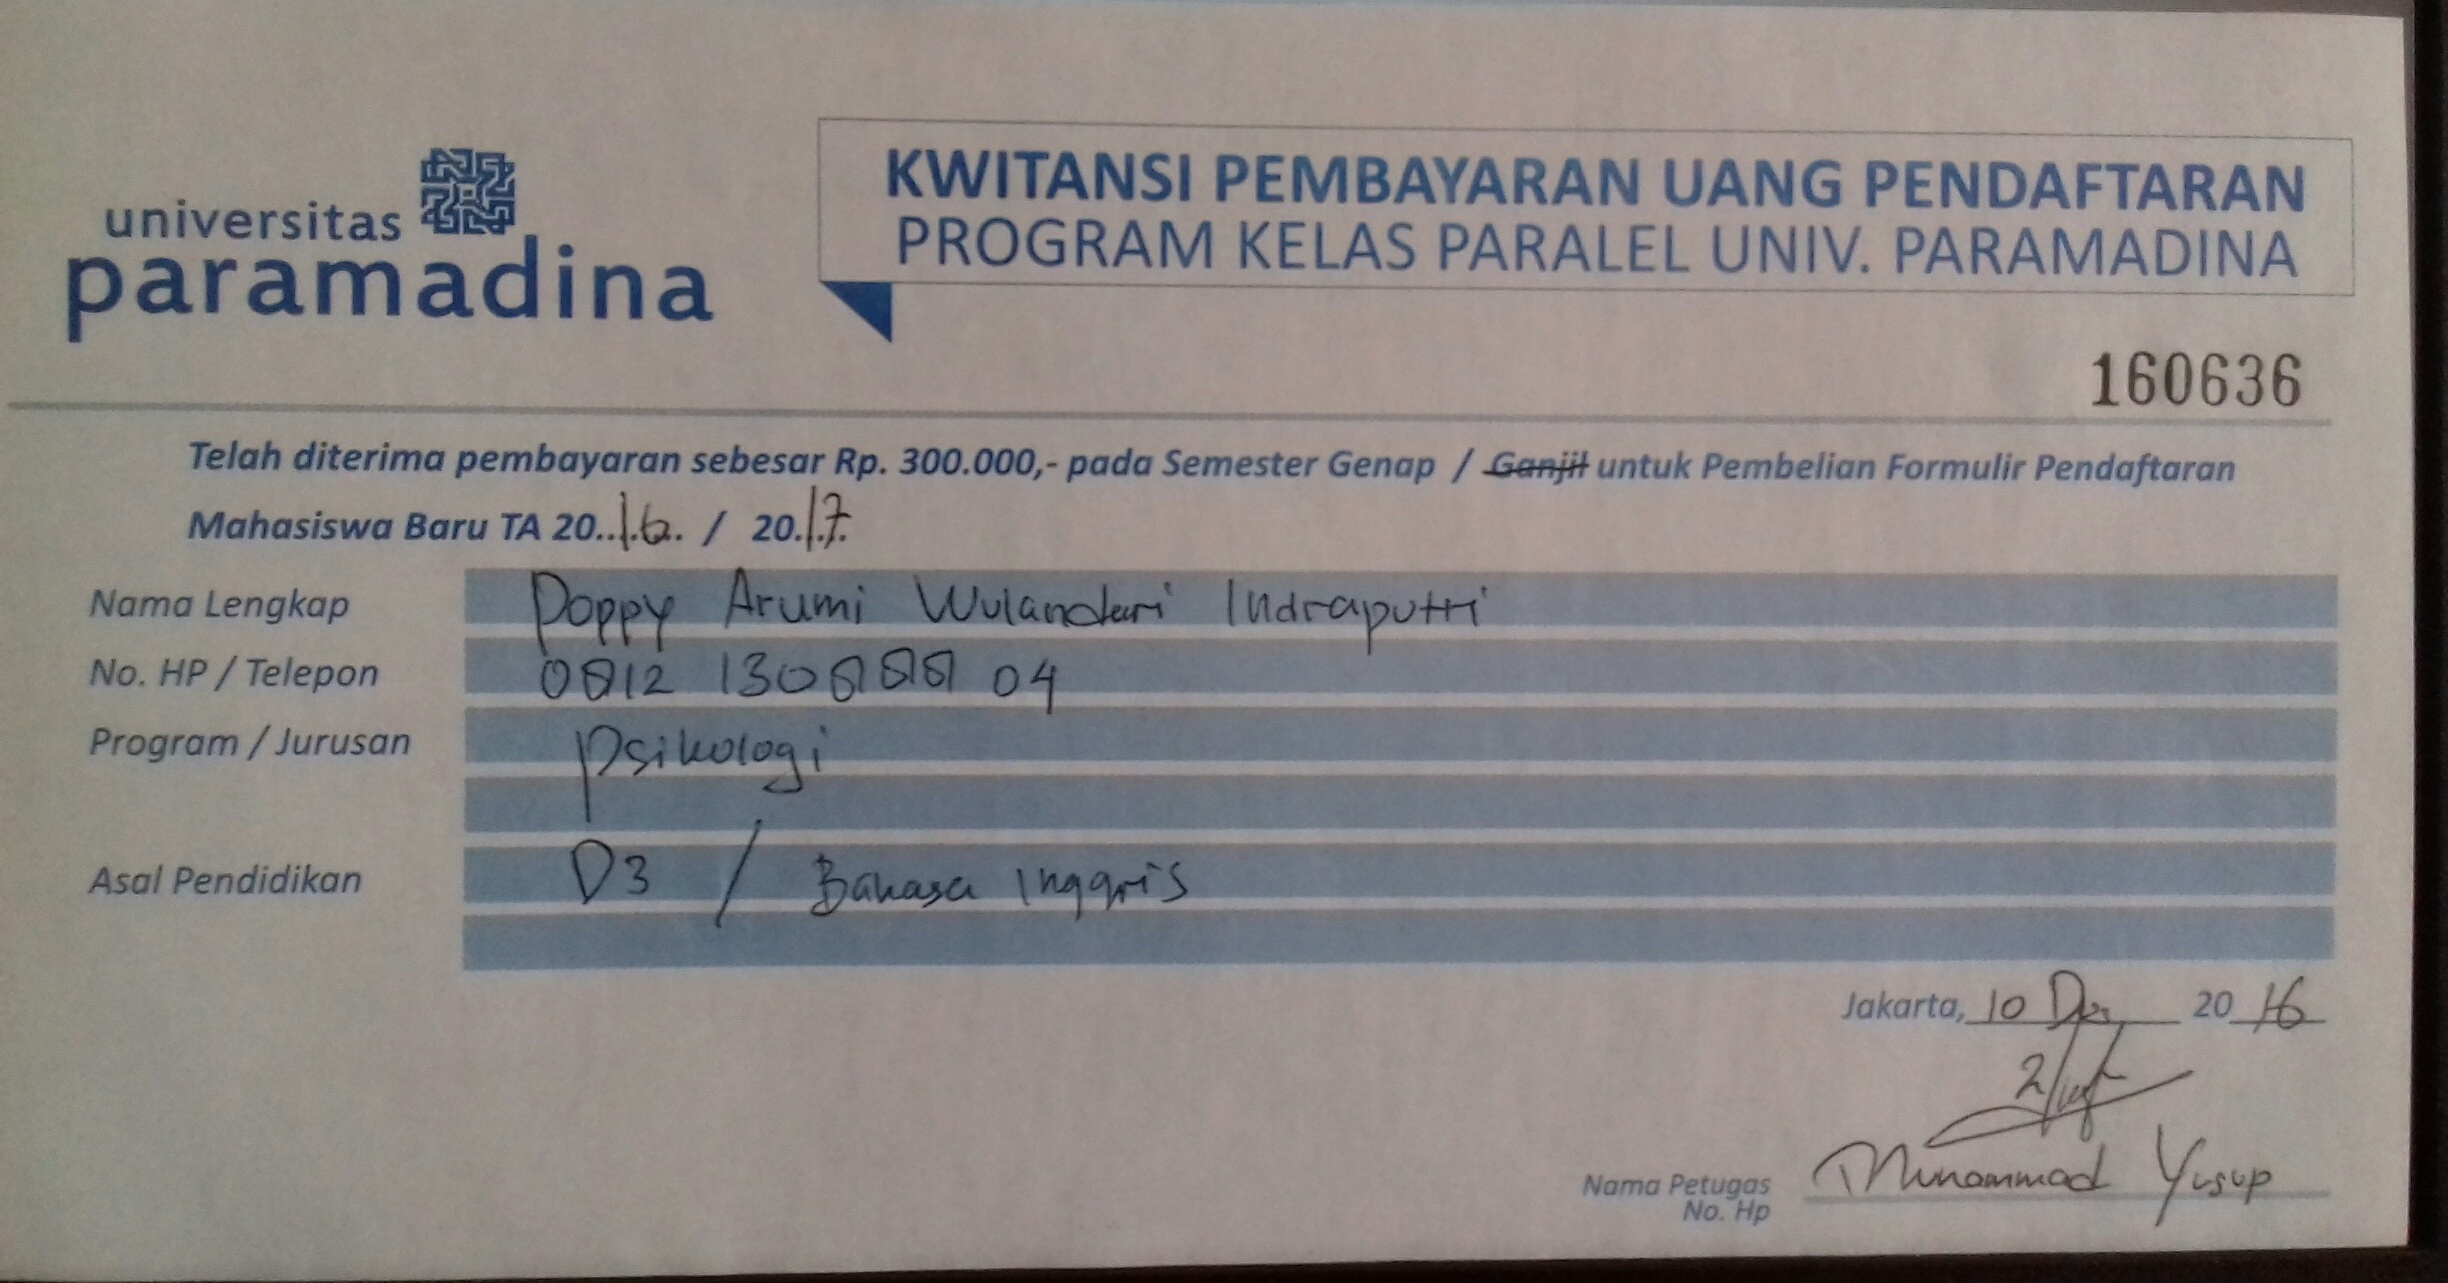 universitas
paramadina
KWITANSI PEMBAYARAN UANG PENDAFTARAN
PROGRAM KELAS PARALEL UNIV. PARAMADINA
160636
Telah diterima pembayaran sebesar Rp. 300.000,- pada Semester Genap / Ganjil untuk Pembelian Formulir Pendaftaran
Mahasiswa Baru TA 20..16.. / 20.17.
Nama Lengkap Poppy Arumi Wulandari Indraputri
No. HP / Telepon 0812 130888 04
Program / Jurusan Psikologi
Asal Pendidikan D3 / Bahasa Inggris
Jakarta, 10 Des 2016
Nama Petugas Muhammad Yusup
No. Hp